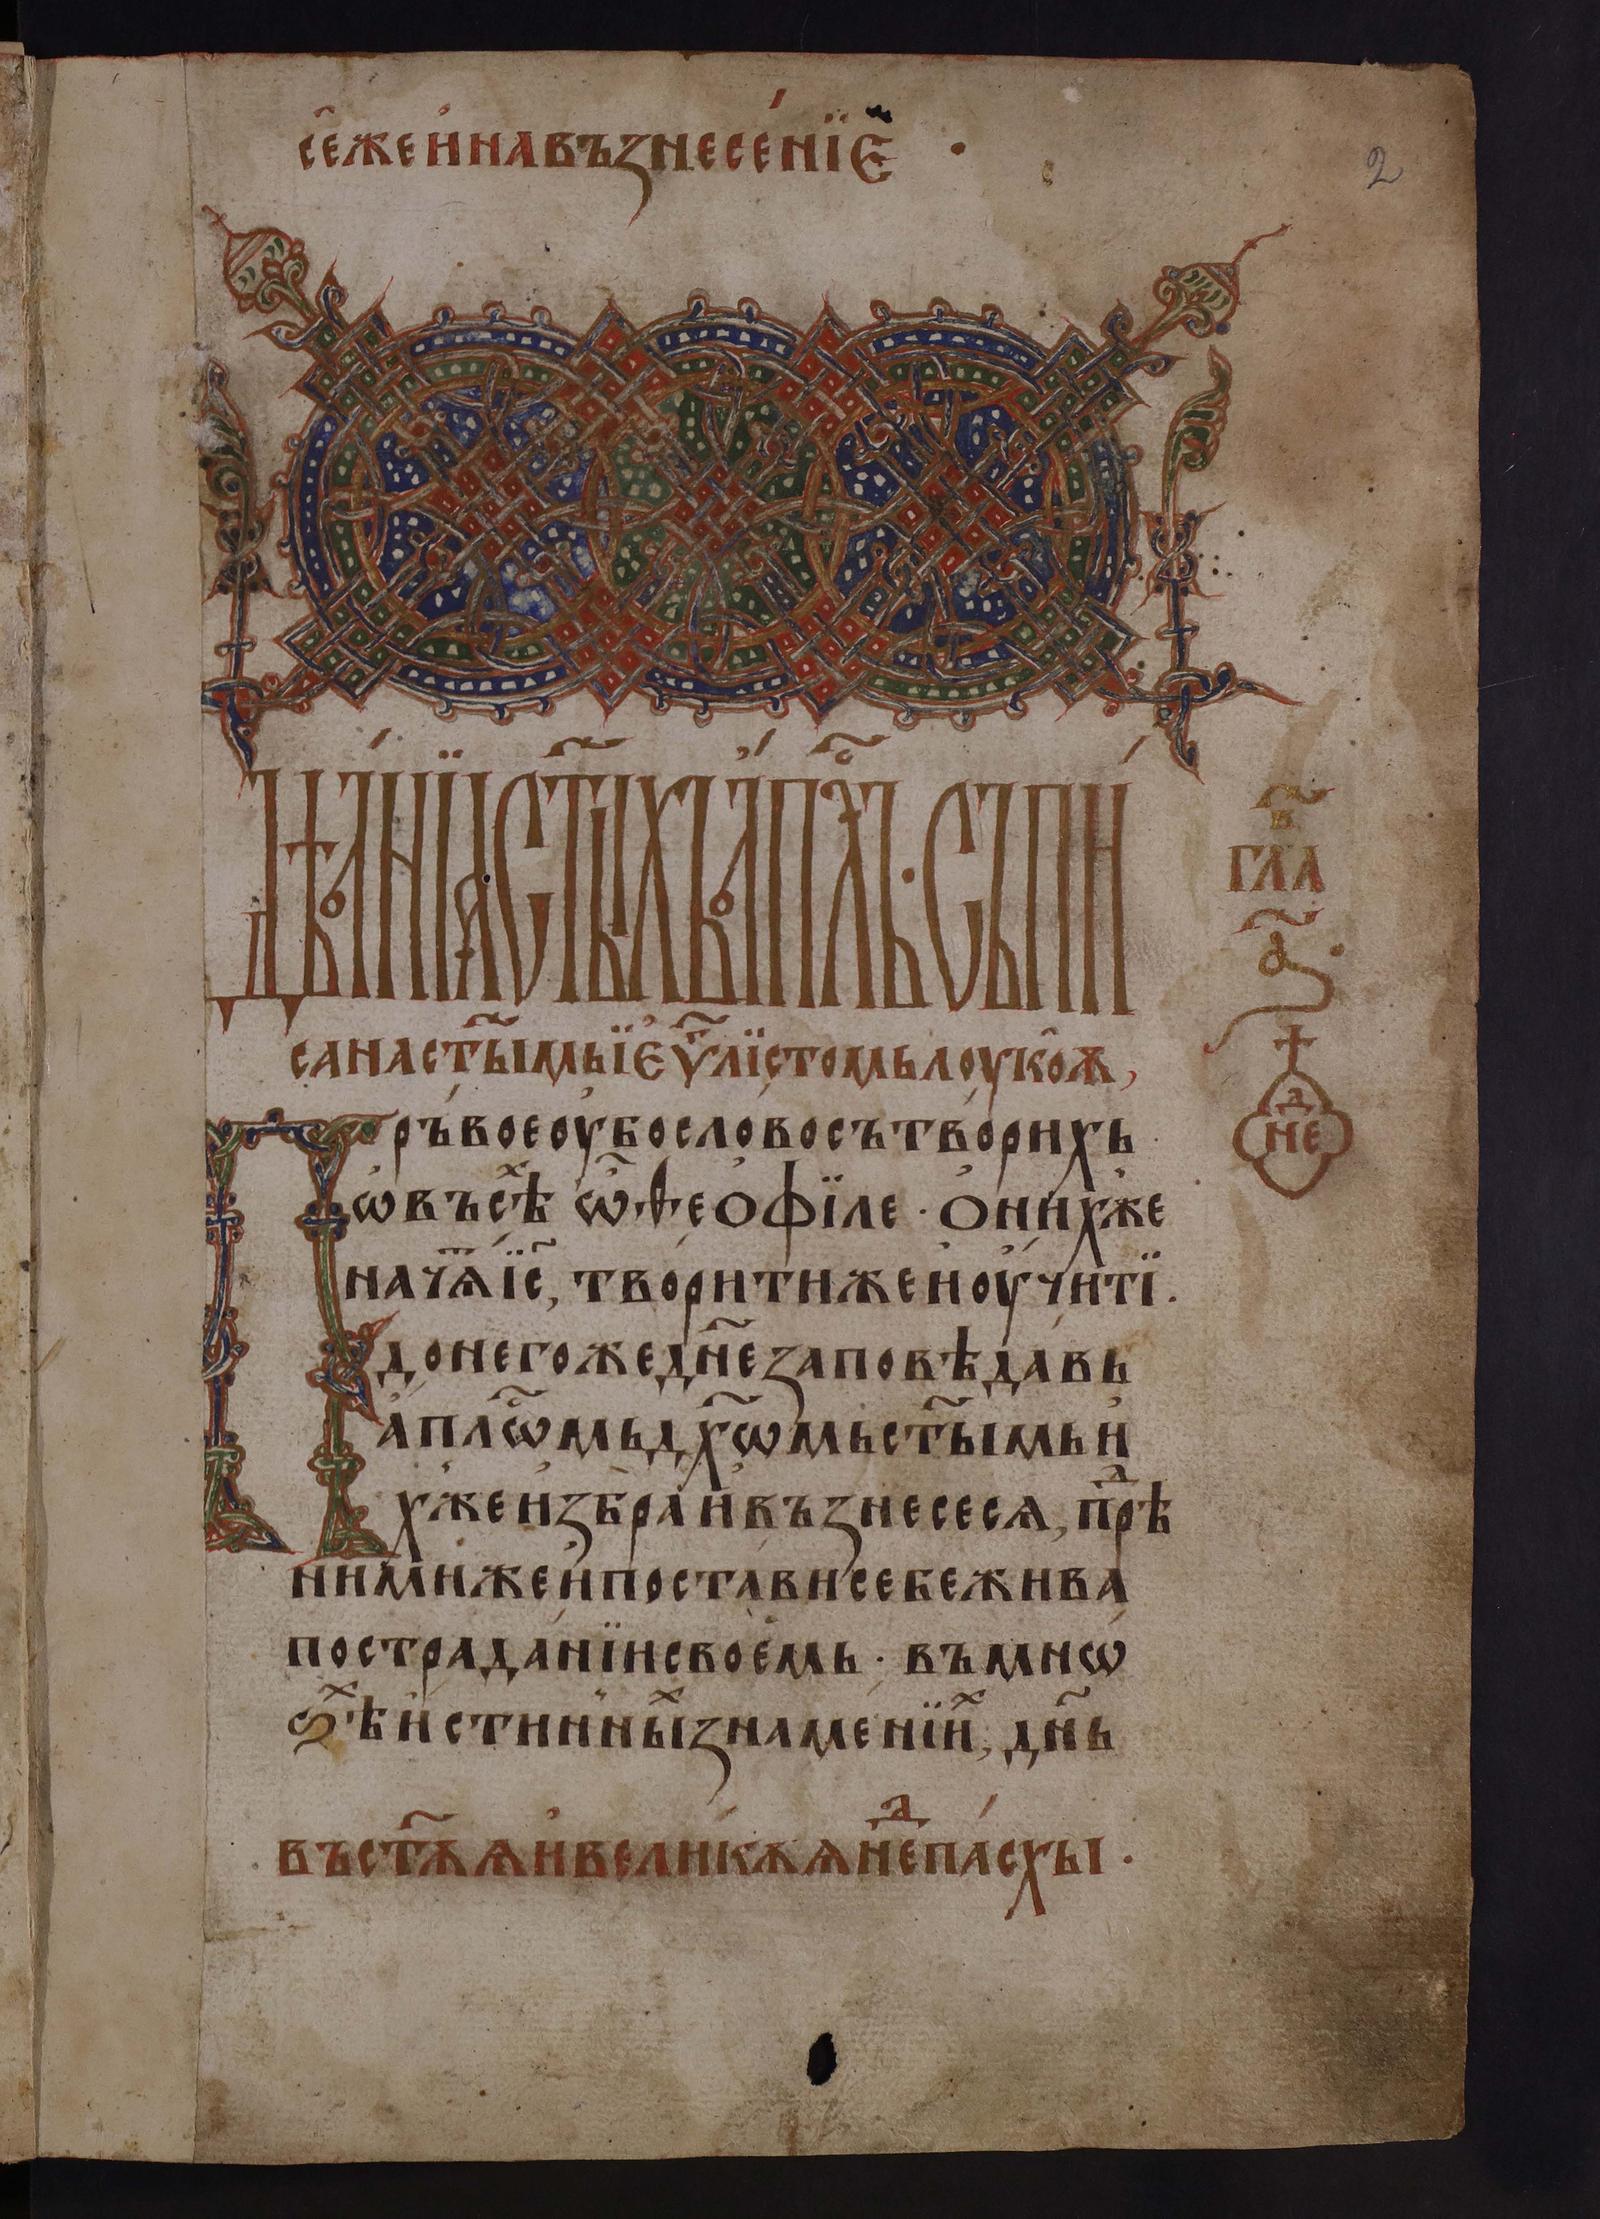 се же и на възнесенїе ·
2
Дѣанїа ст҃ыхь ап҃лъ · съпи
сана ст҃ыимь їеѵ҃лїстомь лоукоѫ,
г҃
гла
а҃
дне
Пръвое оубо слово сътворихь
ѡ въсѣⷯ ѡ҃ ѳеофїле · о нихже
начѧⷮ їс҃, творити же и оучитї .
до негоже дн҃е заповѣдавь
апл҃ѡмь дх҃ѡмь ст҃ыимь и
хже избра и възнесе сѧ, прⷣѣ
ними же и постави себе жива
по страданїи своемь · въ мнѡ
ѕѣⷯ истинныⷯ знаменїиⷯ, дн҃ь
въ ст҃ѫѧ и великѫѧ неⷣ пасхы ·